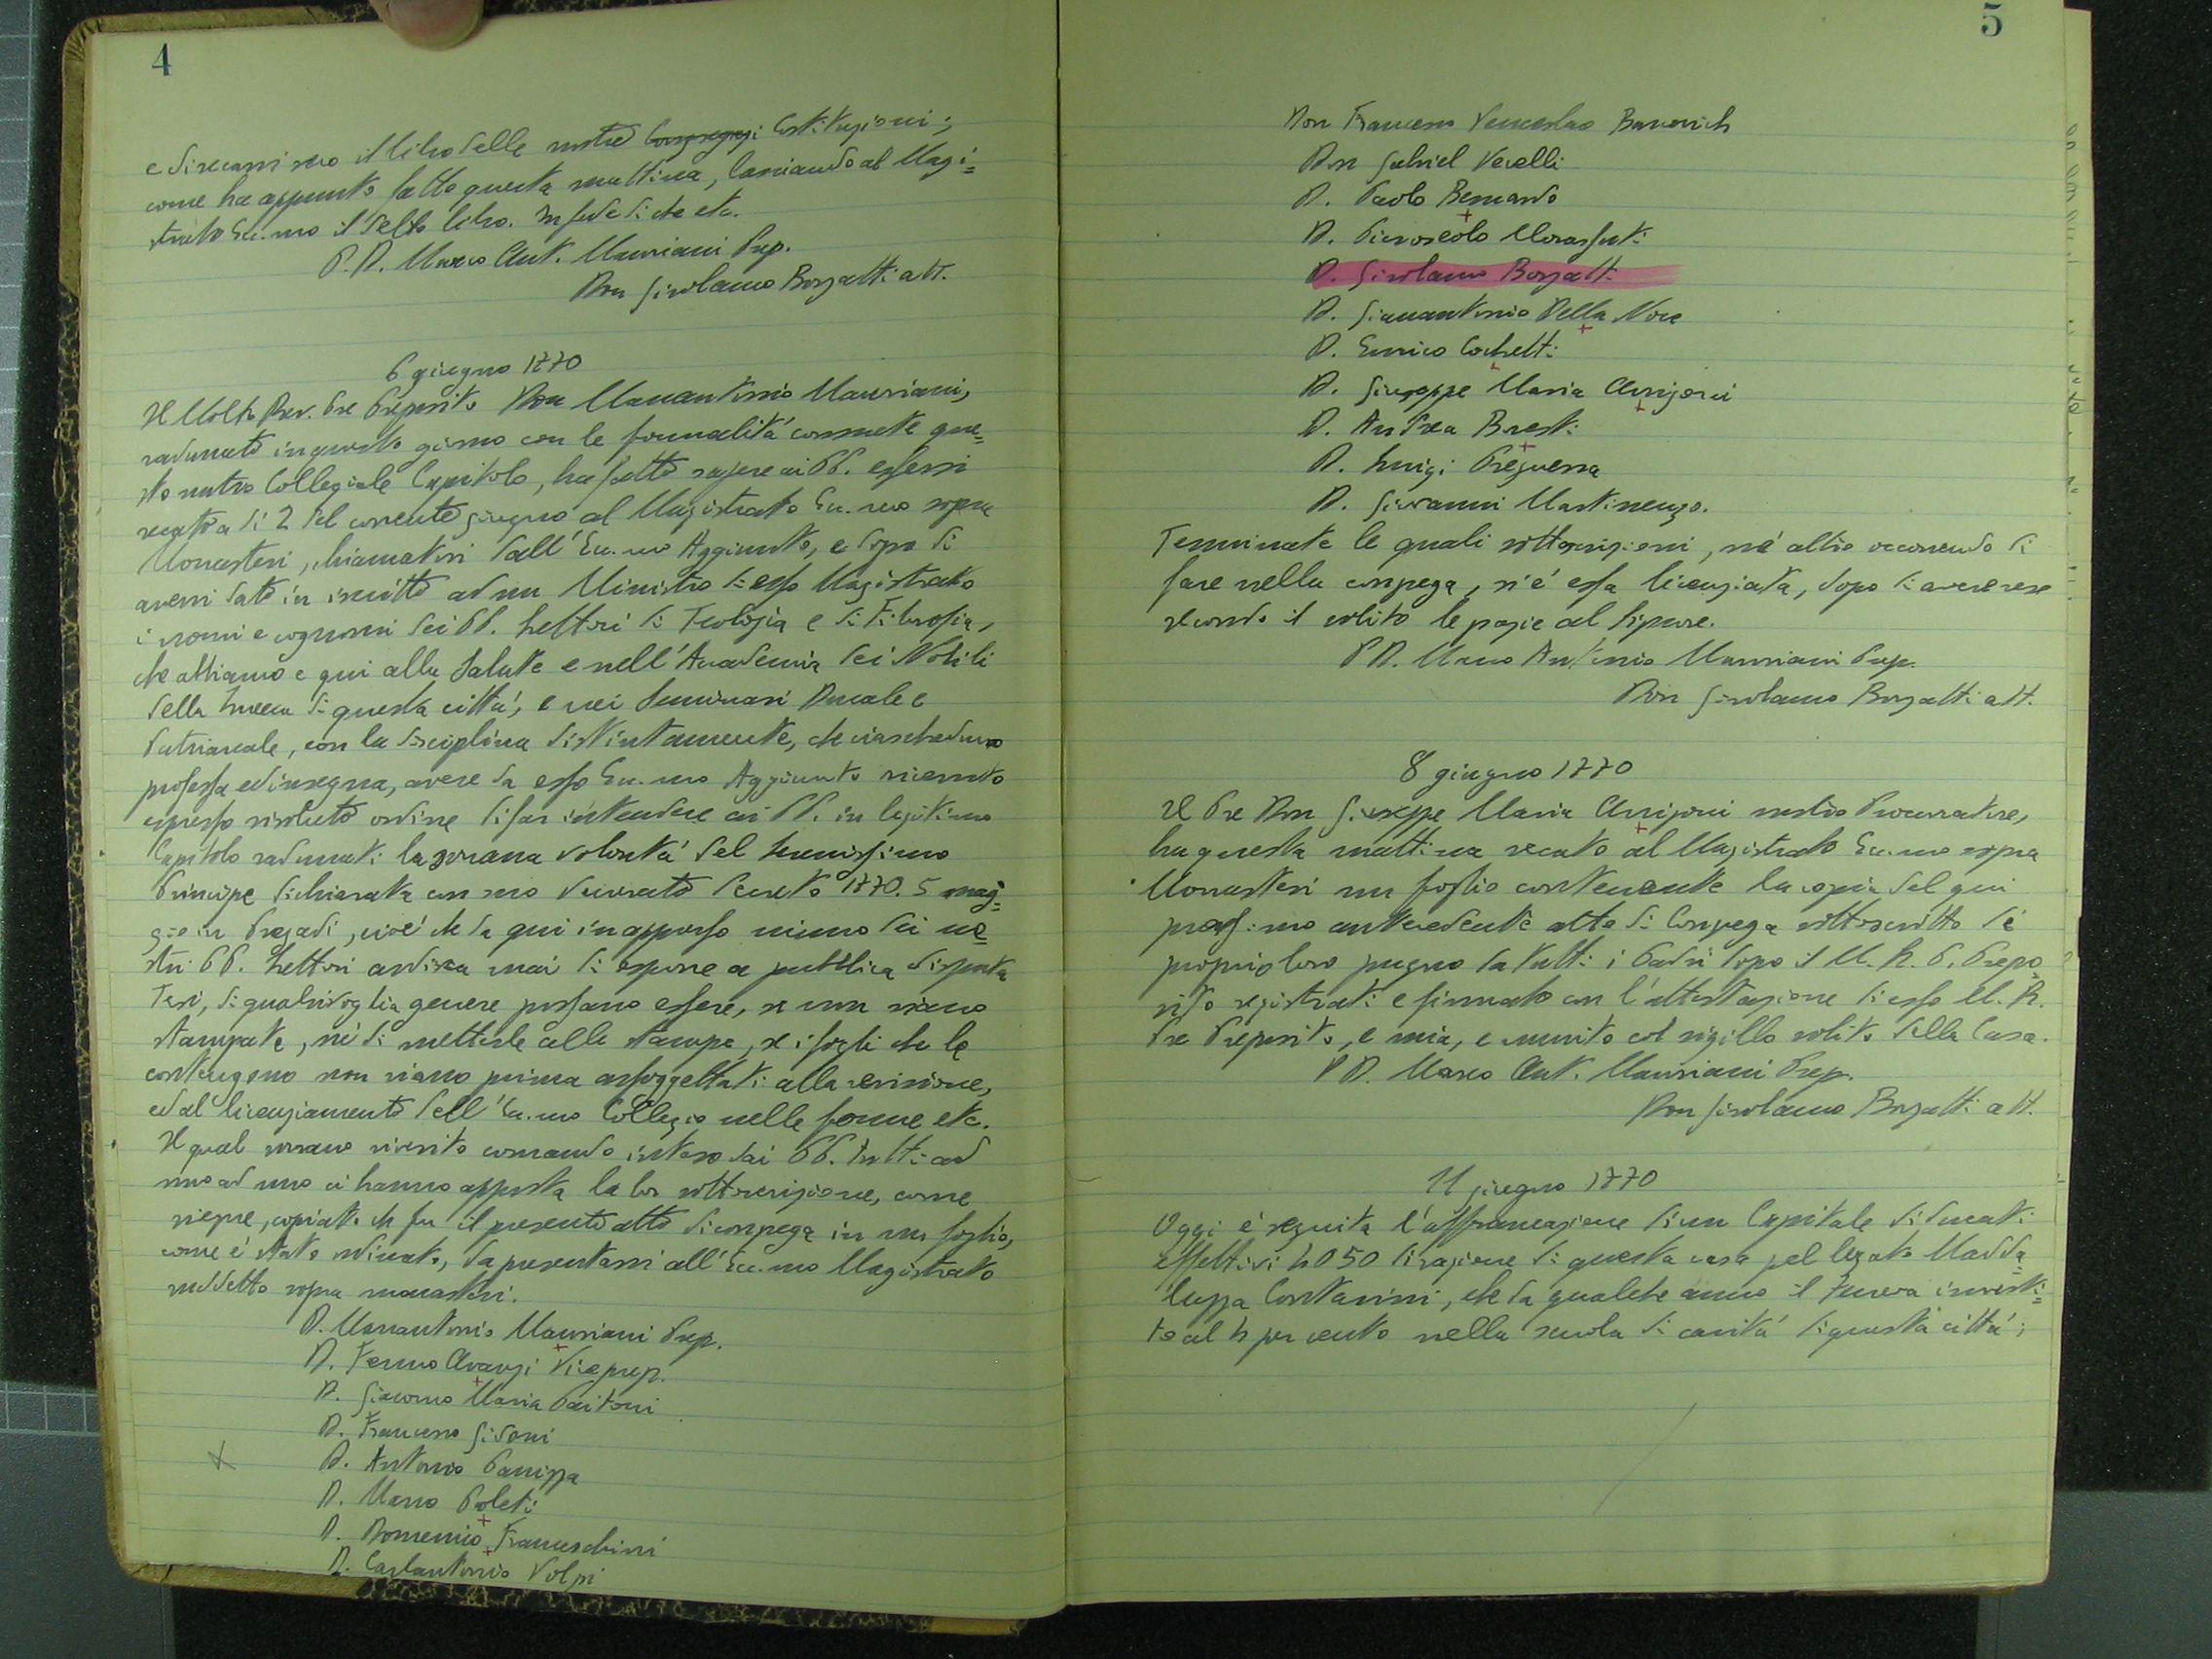 4
e di recarsi seco il libro delle nostre Congregazi Costituzioni;
come ha appunto fatto questa mattina, lasciando al Magi=
strato Ecc.mo il detto libro. In fede di che etc.
P. D. Marco Ant. Mauriani Prep.
Don Girolamo Borzatti att.
6 giugno 1770
Il Molto Rev. Pre Preposito Don Marcantonio Mauriani,
radunato in questo giorno con le formalità consuete que=
sto nostro Collegiale Capitolo, ha fatto sapere ai PP. essersi
recato a dì 2 del corrente giugno al Magistrato Ecc.mo sopra
Monasteri, chiamatovi dall'Ecc.mo Aggiunto, e dopo di
aversi dato in iscritto ad un Ministro di esso Magistrato
i nomi e cognomi dei PP. Lettori di Teologia e di Filosofia,
che abbiamo e qui alla Salute e nell'Accademia dei Nobili
della Zuecca di questa città, e nei Seminari Ducale e
Patriarcale, con la disciplina distintamente, che ciascheduno
professa ed insegna, avere da esso Ecc.mo Aggiunto ricevuto
espresso risoluto ordine di far intendere ai PP. in legitimo
Capitolo radunati la sovrana volontà del Serenissimo
Principe dichiarata con suo venerato Decreto 1770. 5 mag=
gio in Pregadi, cioè che da qui in appresso niuno dei no
stri PP. Lettori ardisca mai di esporre a pubblica disputa
Tesi, di qualsivoglia genere possano essere, se non siano
stampate, nè di metterle alle stampe, se i fogli che le
contengono non siano prima assoggettati alla revisione,
ed al licenziamento dell'Ecc.mo Collegio nelle forme etc.
Il qual sovrano riverito comando inteso dai PP. tutti ad
uno ad uno ci hanno apposta la lor sottoscrizione, come
siegue, copiato che fu il presente atto di congrega in un foglio,
come è stato ordinato, da presentarsi all'Ecc.mo Magistrato
suddetto sopra monasteri.
D. Marcantonio Mauriani Prep.
D. Fermo Avanzi Viceprep.
D. Giacomo Maria Paitoni
D. Francesco Gidoni
D. Antonio Panizza
D. Marco Poleti
D. Domenico Franceschini
D. Carlantonio Volpi
5
Don Francesco Venceslao Barcovich
Don Gabriel Vecelli
D. Paolo Bernardo
D. Gironolo Morasfuti
D. Girolamo Borzatti
D. Gianantonio Della Nove
D. Enrico Cochetti
D. Giuseppe Maria Arrigoni
D. Andrea Bresti
D. Luigi Preguerra
D. Giovanni Martinengo.
Terminate le quali sottoscrizioni, nè altro occorrendo di
fare nella congrega, si è essa licenziata, dopo di avere rese
secondo il solito le grazie al Signore.
P D. Marco Antonio Mauriani Prep.
Don Girolamo Borzatti att.
8 giugno 1770
Il Pre Don Giuseppe Maria Arrigoni nostro Procuratore,
ha questa mattina recato al Magistrato Ecc.mo sopra
Monasteri un foglio contenente la copia del qui
prossimo antecedente atto di Congrega sottoscritto di
proprio loro pugno da tutti i Padri dopo il M. R. P. Prepo
sito registrati e firmato con l'attestazione di esso M. R.
Pre Preposito, e mia, e munito col sigillo solito della Casa.
P D. Marco Ant. Mauriani Prep.
Don Girolamo Borzatti att.
11 giugno 1770
Oggi è seguita l'affrancazione di un Capitale di ducati
effettivi 4050 di ragione di questa casa pel legato Madda
luzza Contarini, che da qualche anno si teneva investi=
to al 4 per cento nella scuola di carità di questa città;